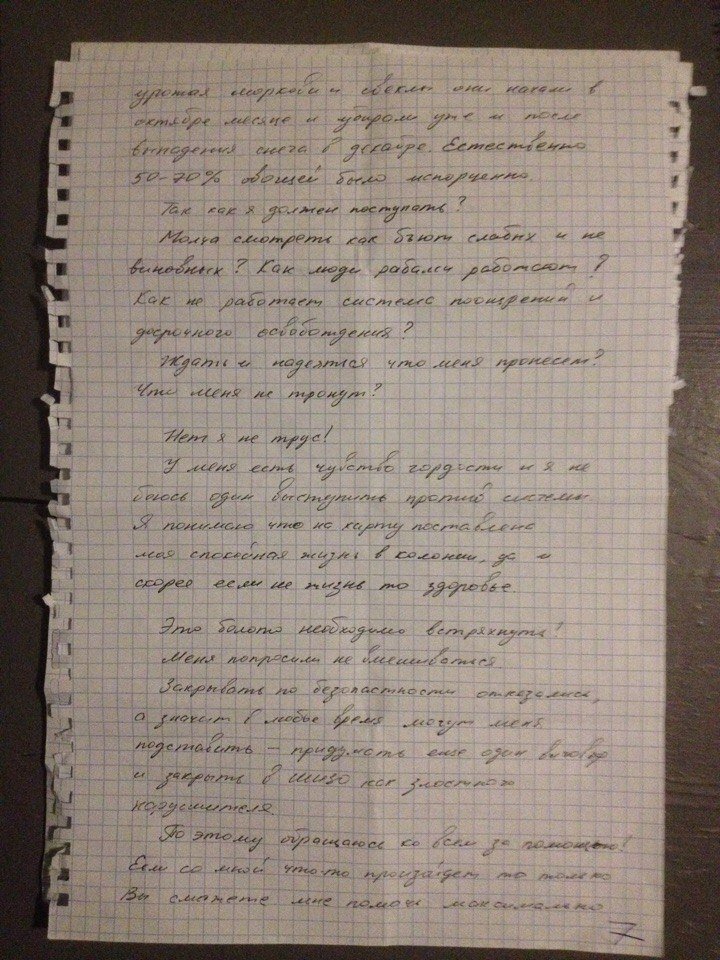 урожая моркови и свеклы они начали в
октябре месяце и убирали уже и после
выпадения снега в декабре. Естественно
50-70% овощей было испорченно.
Так как я должен поступать?
Молча смотреть как бьют слабых и не
виновных? Как люди рабами работают?
Как не работает система поощрений и
досрочного освобождения?
Ждать и надеяться что меня пронесет?
Что меня не тронут?
Нет я не трус!
У меня есть чувство гордости и я не
боюсь один выступить против системы
Я понимаю что на карту поставлена
моя спокойная жизнь в колонии, да и
скорее если не жизнь то здоровье.
Это болото необходимо встряхнуть!
Меня попросили не вмешиваться
Закрывать по безопастности отказались,
а значит в любое время могут меня
подставить – придумать еще один выговор
и закрыть в ШИЗО как злостного
нарушителя.
По этому обращаюсь ко всем за помощью!
Если со мной что-то произойдет то только
Вы сможете мне помочь максимально
7